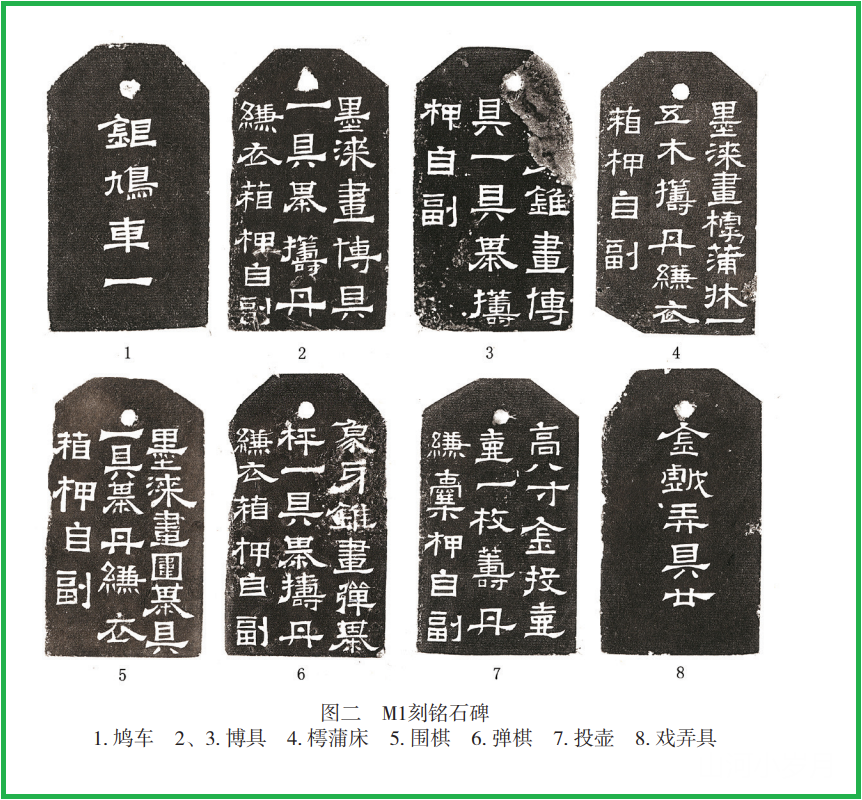 鳩車一
1
墨漆畫博具
一具棊籌丹
縑衣箱柙自副
2
錐畫博
具一具棊籌
柙自副
3
墨漆畫樗蒲牀一
五木籌丹縑衣
箱柙自副
4
墨漆畫圍棊具
一具棊丹縑衣
箱柙自副
5
象牙錐畫彈棊
枰一具棊籌丹
縑衣箱柙自副
6
高八寸金投壺
壺一枚籌丹
縑囊柙自副
7
金戲弄具廿
8
图二 M1刻铭石碑
1. 鸠车 2、3. 博具 4. 樗蒲床 5. 围棋 6. 弹棋 7. 投壶 8. 戏弄具